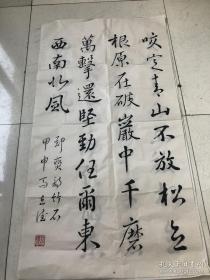 咬定青山不放松立
根原在破巖中千磨
萬擊還堅勁任爾東
西南北風
鄭燮詩竹石
甲申